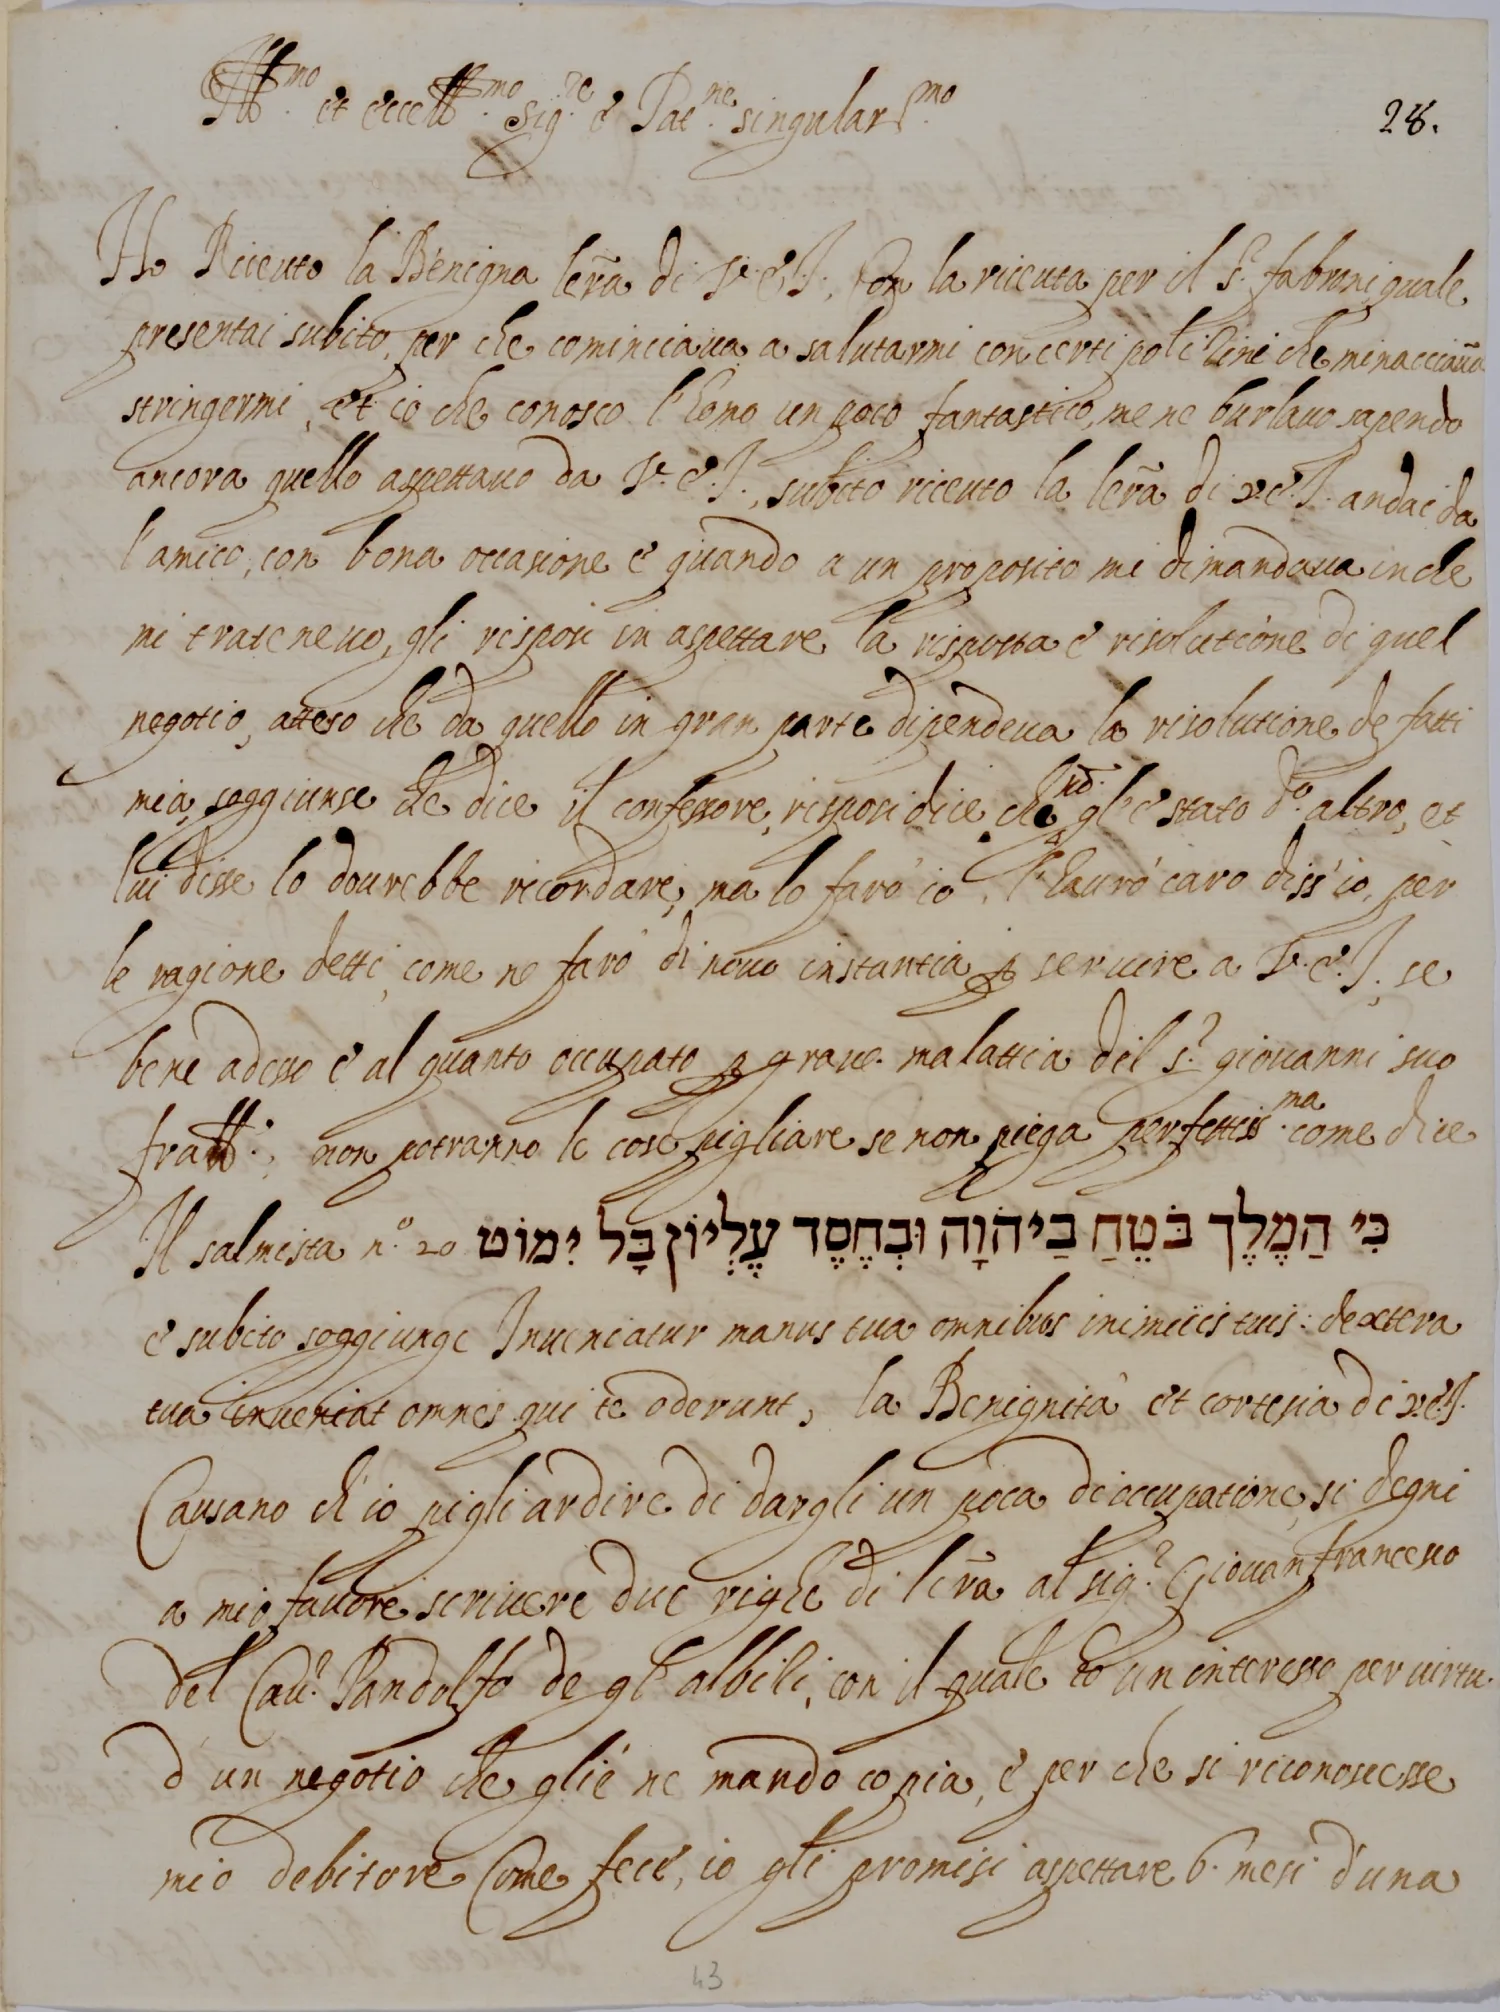 Ill.mo et eccell.mo Sig.re e Pae.ne singular.mo
28.
Ho Riceuto la Benigna lera di V.E.I. Con la riceuta per il S.r fabroni, quale
presentai subito, per che cominciaua a salutarmi con certi polizini che minacciaua
stringermi, et io che conosco l'homo un poco fantastico, me ne burlauo sapendo
ancora quello aspettauo da V.E.I., subito riceuto la lera di V.E.I. andai da
l'amico, con bona occasione e quando a un proposito mi dimandaua in che
mi trateneuo, gli risposi in aspettare la risposta e risolutione di quel
negotio, atteso che da quello in gran parte dipendeua la risolutione de fatti
mia, soggiunse che dice il confessore, risposi dice che nō gl'e stato d.o altro, et
lui disse lo dourebbe ricordare, ma lo farò io, l'haurò caro diss'io, per
le ragione detti, come ne farò di nouo instantia p seruire a V.E.I., se
bene adesso e al quanto occupato p graue malattia del S.r giouanni suo
frall.o, non potranno le cose pigliare se non piega perfettiss.ma come dice
Il salmista n.o 20 כִּי הַמֶּלֶךְ בֹּטֵחַ בַּיהֹוָה וּבְחֶסֶד עֶלְיוֹן בַּל יִמּוֹט
e subito soggiunge Inueniatur manus tua omnibus inimicis tuis: dextera
tua inueniat omnes qui te oderunt, la Benignità et cortesia di V.E.I.
Causano ch'io pigli ardire di dargli un poca di occupatione, si degni
a mio fauore scriuere due righe di lera al sig.r Giouanfrancesco
del Cau.r Pandolfo de gl'albili, con il quale ho un interesse per uirtu
d'un negotio che gliè ne mando copia, e per che si riconoscesse
mio debitore Come fece, io gli promisi aspettare 6. mesi d'una
43